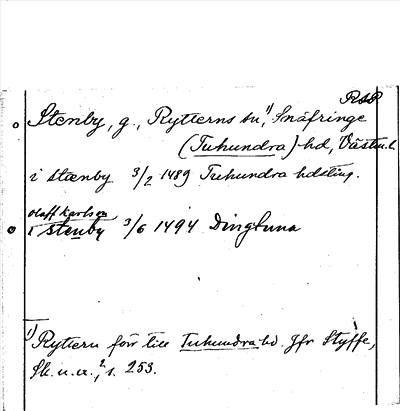 RSP
Stenby, g., Rytterns sn,¹⁾ Snäfringe
(Tuhundra)-hd, Västm.l.
i stænby 3/2 1489 Tuhundra hdsting.
olaff karlson
i stenby 3/6 1494 Dingtuna
1) Ryttern förr till Tuhundra hd. Jfr Styffe,
Sk. u. a.², s. 253.